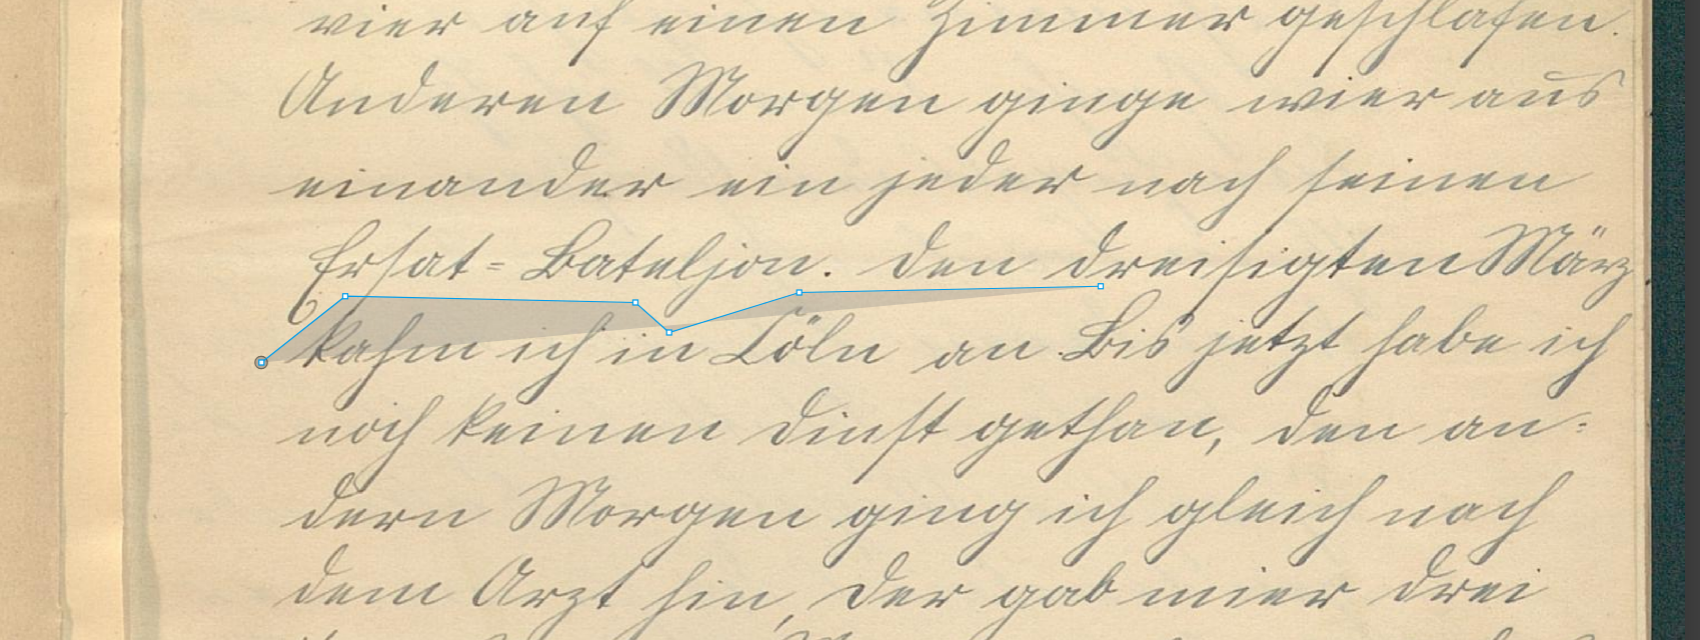 vier auf einen Zimmer geschlafen.
Anderen Morgen ginge wier aus
einander ein jeder nach seinen
Ersat-Bateljon. Den dreisigten März
kahm ich in Cöln an. Bis jetzt habe ich
noch keinen Dinst gethan, den an-
dern Morgen ging ich gleich nach
dem Arzt hin, Der gab mier drei